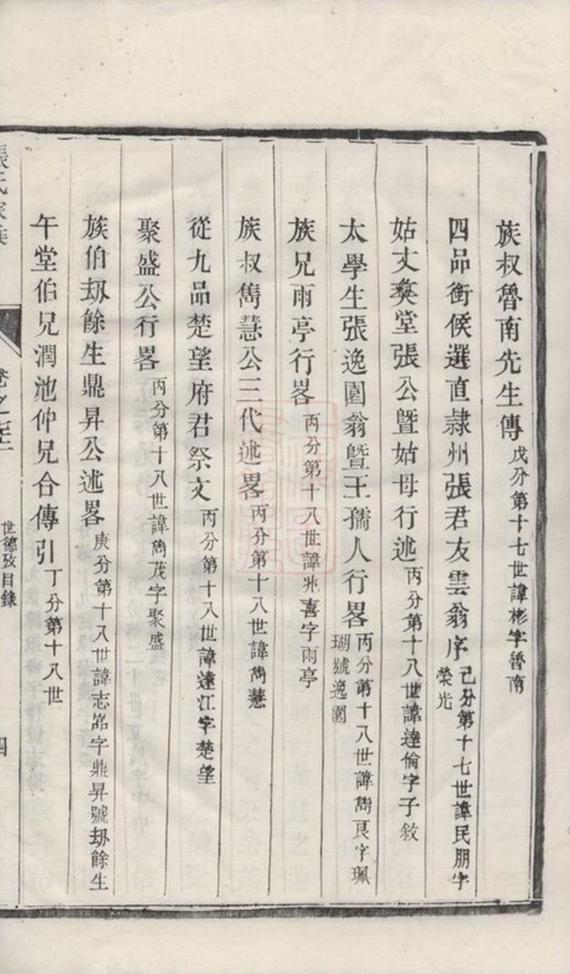 族叔魯南先生傳 戊分第十七世諱彬字魯南
四品銜候選直隷州張君友雲翁序 己分第十七世諱民朋字
榮光
姑丈奏堂張公暨姑母行述 丙分第十八世諱達倫字子敘
太學生張逸園翁暨王孺人行畧 丙分第十八世諱雋良字珮
瑚號逸園
族兄雨亭行畧 丙分第十八世諱兆喜字雨亭
族叔雋慧公三代述畧 丙分第十八世諱雋慧
從九品楚望府君祭文 丙分第十八世諱達江字楚望
聚盛公行畧 丙分第十八世諱雋茂字聚盛
族伯刼餘生鼎昇公述畧 庚分第十八世諱志嵩字鼎昇號刼餘生
午堂伯兄潤池仲兄合傳引 丁分第十八世
張氏家乘
卷之
世德攷目錄
四